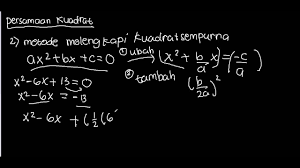 persamaan kuadrat
2) metode melengkapi kuadrat sempurna
ax²+bx+c=0 ① ubah (x² + b/a x) = (-c/a)
x²-6x+13=0 ② tambah (b/2a)²
x²-6x = -13
x²-6x + (½(6